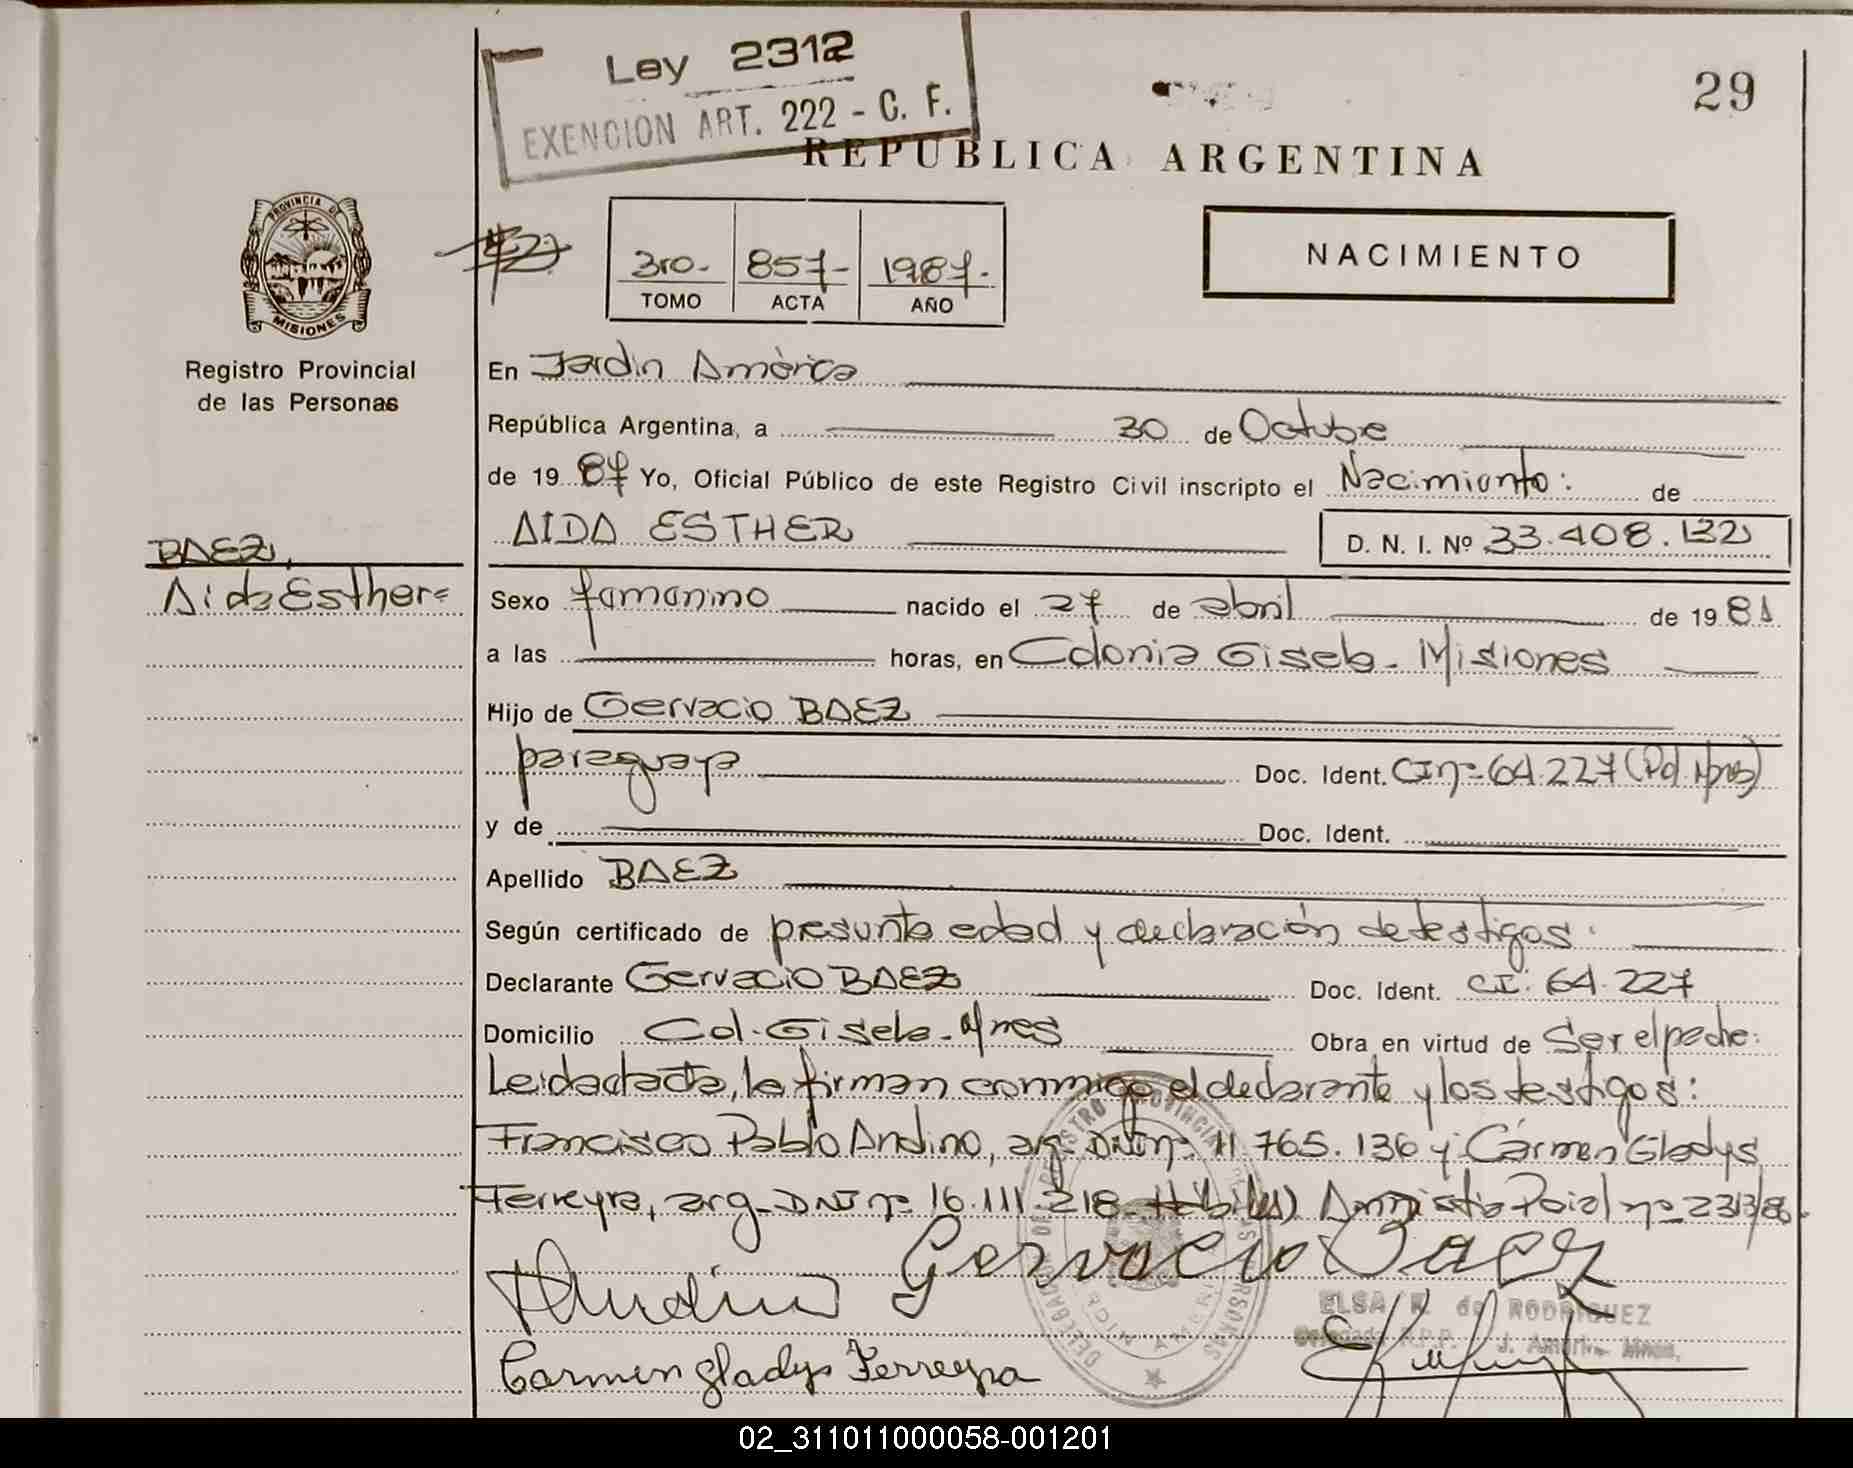 Ley 2312
EXENCION ART. 222 - C. F.
29
REPUBLICA ARGENTINA
PROVINCIA DE
MISIONES
Registro Provincial
de las Personas
3ro.- 857- 1987.-
TOMO ACTA AÑO
NACIMIENTO
En Jardin América
República Argentina, a 30 de Octubre
de 19 87 Yo, Oficial Público de este Registro Civil inscripto el Nacimiento: de
AIDA ESTHER D. N. I. Nº 33.408.132
BAEZ,
Aida Esther=
Sexo femenino nacido el 27 de abril de 19 81
a las horas, en Colonia Gisela- Misiones
Hijo de Gervacio BAEZ
paraguaya Doc. Ident. CI nº 64.227 (Pol. Mnes)
y de Doc. Ident.
Apellido BAEZ
Según certificado de presunta edad y declaración de testigos.
Declarante Gervacio BAEZ Doc. Ident. CI: 64.227
Domicilio Col. Gisela- Mnes Obra en virtud de Ser el padre:
Leida el acta, la firman conmigo el declarante y los testigos:
Francisco Pablo Andino, arg- DNI nº 11.765.136 y Cármen Gladys
Ferreyra, arg- DNI nº 16.111.218- Amnistia nº 2313/86.
Gervacio Baez
Andino
ELSA R. de RODRIGUEZ
Delegado R.P.P. J. América Mnes.
Carmen Gladys Ferreyra
02_311011000058-001201